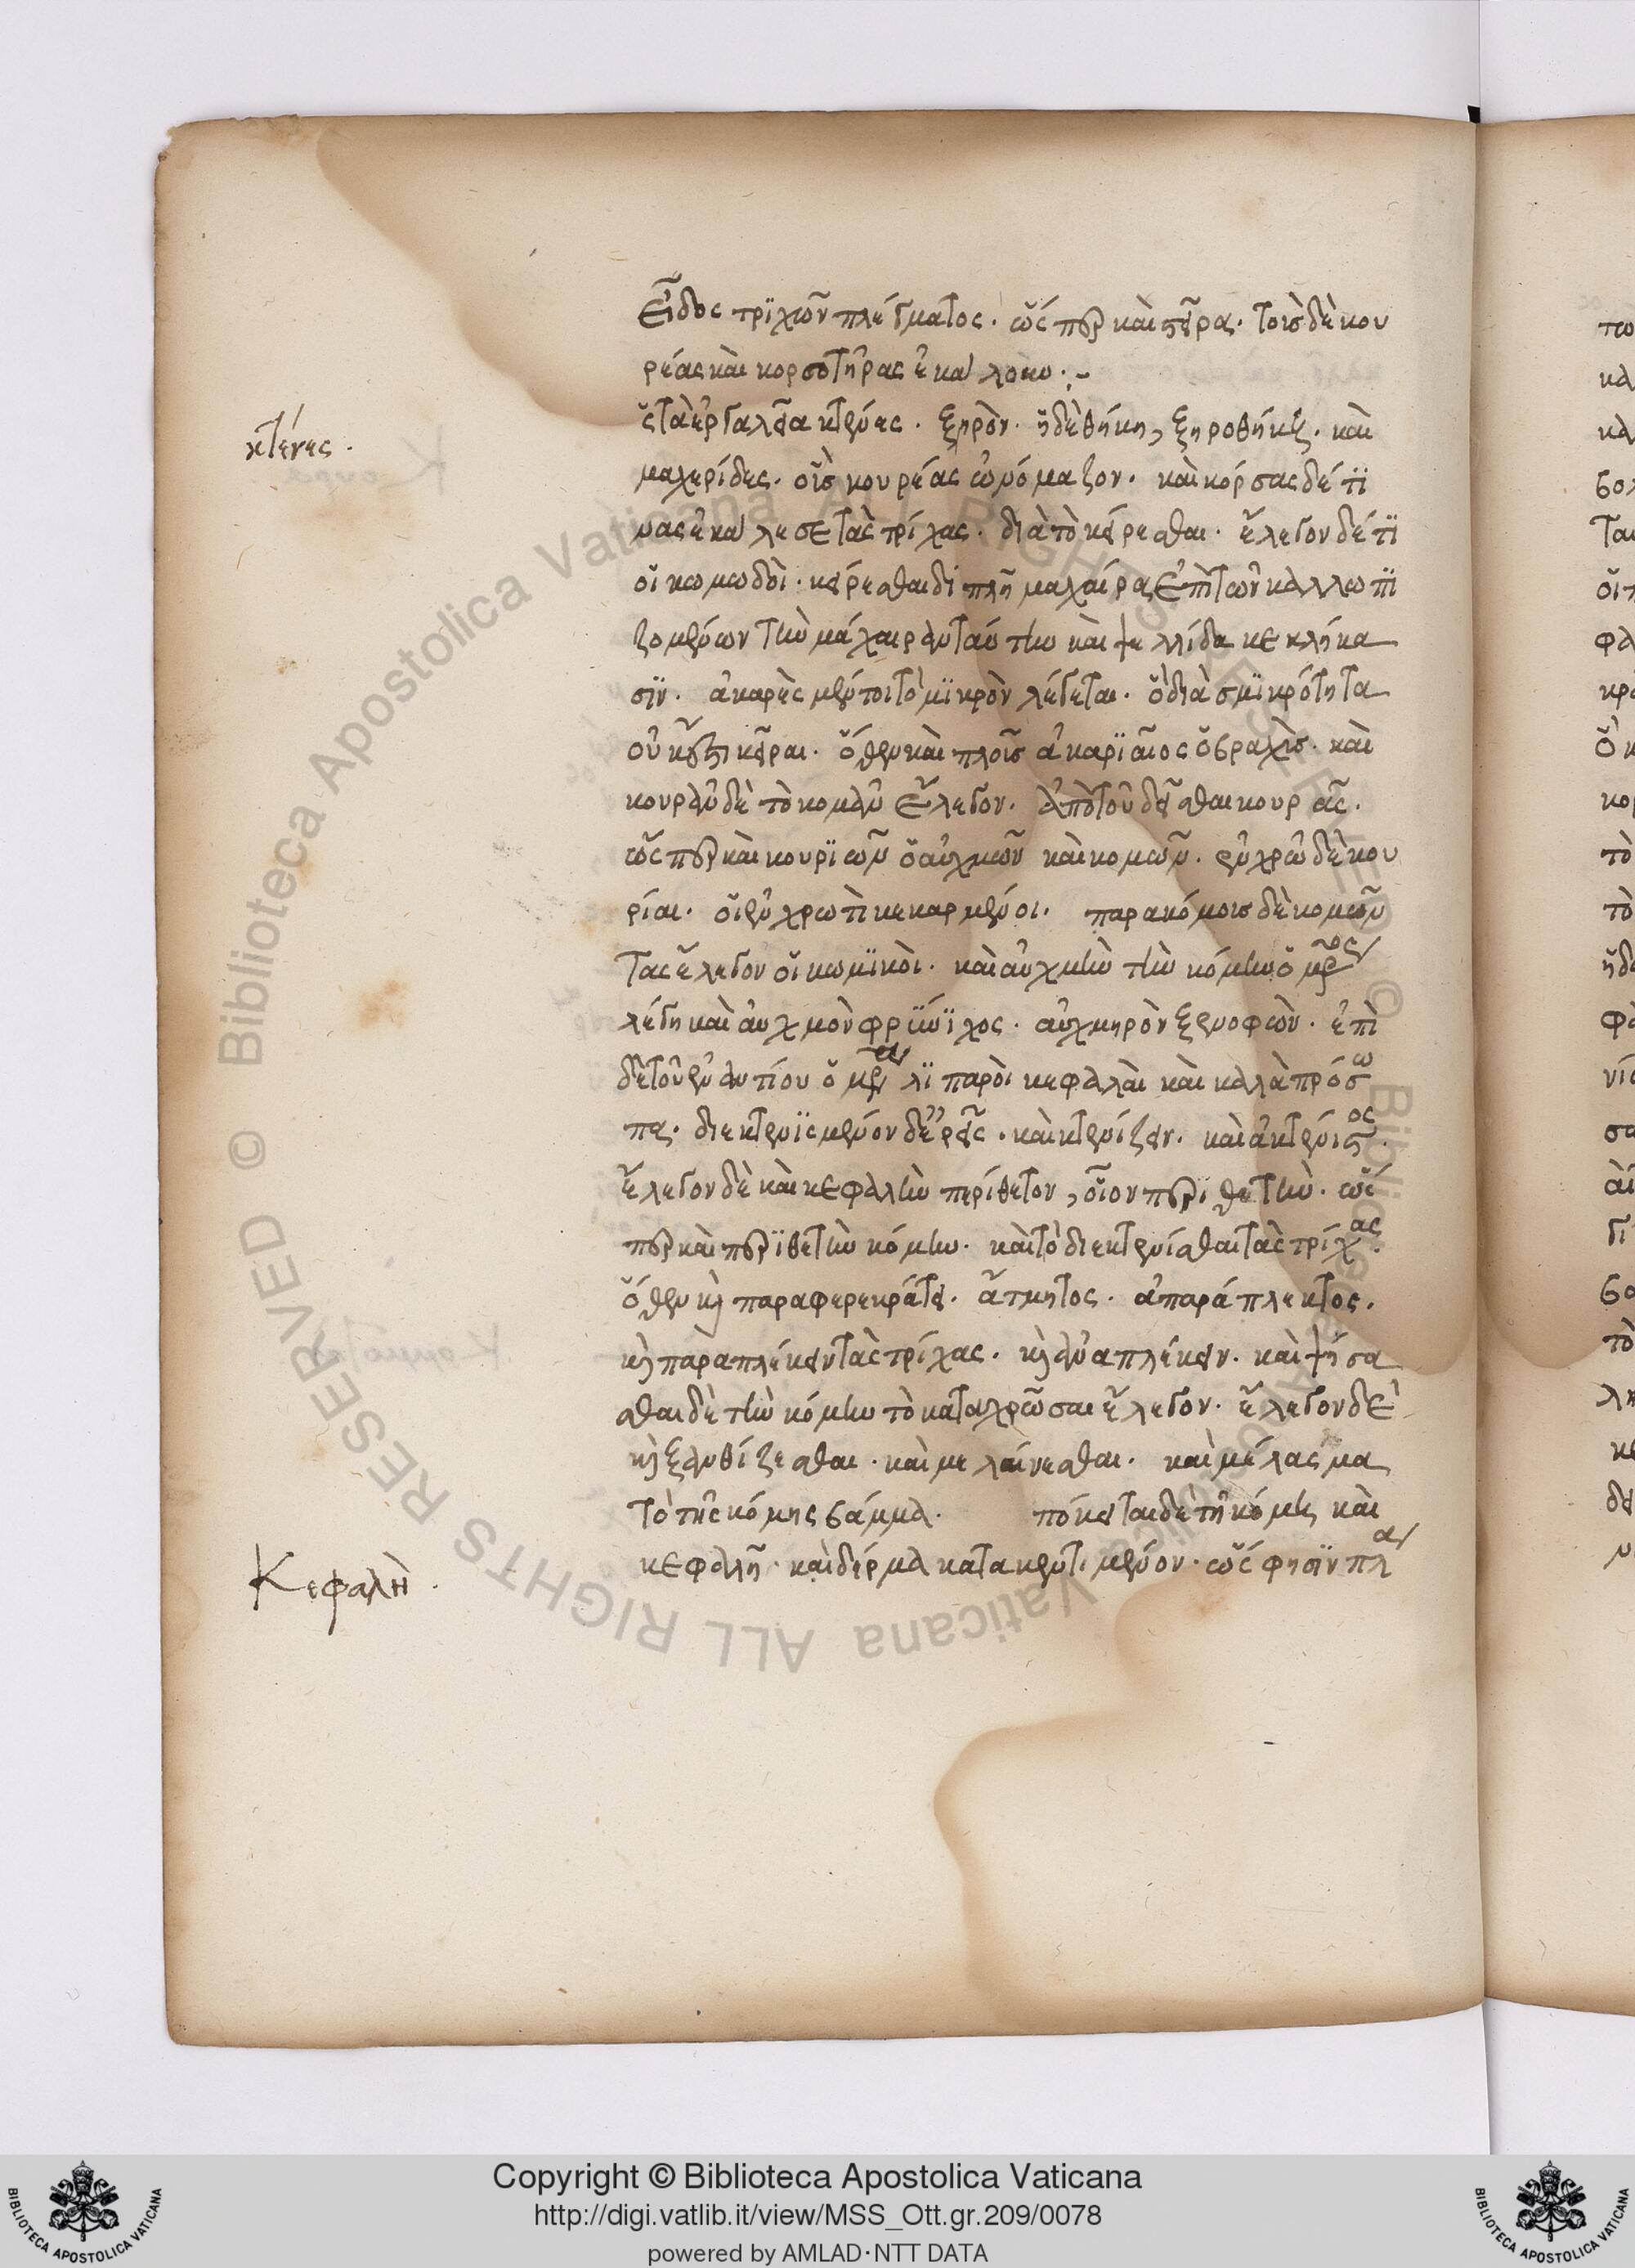 εἶδος τριχῶν πλέγματος. ὥσπερ καὶ σπεῖρας. τοὺς δὲ κου
ρέας καὶ κορσωτῆρας ἐκάλουν :-
κτένες.
ἔς τὰ ἐργαλεῖα κτένες. ξηρὸν. ἡ δὲ θήκη, ξηροθήκη. καὶ
μαχερίδες. οἷς κουρέας ὠνόμαζον. καὶ κόρσας δέ τϊ
νας ἐκάλεσε τὰς τρίχας. διὰ τὸ κείρεσθαι. ἔλεγον δέ τϊ
οἱ κωμωδοὶ. κείρεσθαι διπλῇ μαχαίρᾳ ἐπὶ τῶν καλλωπϊ
ζομένων τὴν μάχαιραν ταύτην καὶ ψελλίδα κεκλήκα
σϊν. ἀκαρὲς μέντοι τὸ μϊκρὸν λέγεται. ὃ διὰ σμϊκρότητα
οὐκ ἔστι κεῖραι. ὅθεν καὶ πλοῖς ἀκαρϊαῖος ὁ βραχὺς. καὶ
κουρᾶν δὲ τὸ κομᾶν ἔλεγον. ἀπὸ τοῦ δεῖσθαι κουρᾶς.
ὥσπερ καὶ κουρϊῶν ὁ αὐχμῶν καὶ κομῶν. ἐν χρῷ δὲ κου
ρίαι. οἱ ἐν χρωτὶ κεκαρμένοι. παρακόμους δὲ κομῶν
τας ἔλεγον οἱ κωμϊκοὶ. καὶ αὐχμὴν τὴν κόμην ὁ μρος
λέγη καὶ αὐχμὸν φρϋνϊχος. αὐχμηρὸν ξενοφῶν. ἐπὶ
δὲ τοῦ ἐναντίου ὁ μρ λϊπαροὶ κεφαλὰι καὶ καλὰ πρόσω
πα. διεκτενϊσμένον δὲ ἐρεῖς. καὶ κτενίζειν. καὶ ἀκτένιστος.
ἔλεγον δὲ καὶ κεφαλὴν περίθετον, οἷον περϊθετὴν. ὥς
περ καὶ περϊθετὴν κόμην. καὶ τὸ διεκτενίσθαι τὰς τρίχας.
ὅθεν καὶ παρα φερεκράτει. ἄτμητος. ἀπαράπλεκτος.
καὶ παραπλέκειν τὰς τρίχας. καὶ ἀναπλέκειν. καὶ ψήσα
σθαι δὲ τὴν κόμην τὸ καταχρῶσαι ἔλεγον. ἔλεγον δὲ
καὶ ξανθίζεσθαι. καὶ μελαίνεσθαι. καὶ μέλασμα
τὸ τῆς κόμης βάμμα. πόκειται δὲ τῇ κόμη καὶ
Κεφαλὴ.
κεφαλῇ. καὶ δέρμα κατακεντιμένον. ὥς φησϊν πλα
Copyright © Biblioteca Apostolica Vaticana
http://digi.vatlib.it/view/MSS_Ott.gr.209/0078
powered by AMLAD·NTT DATA